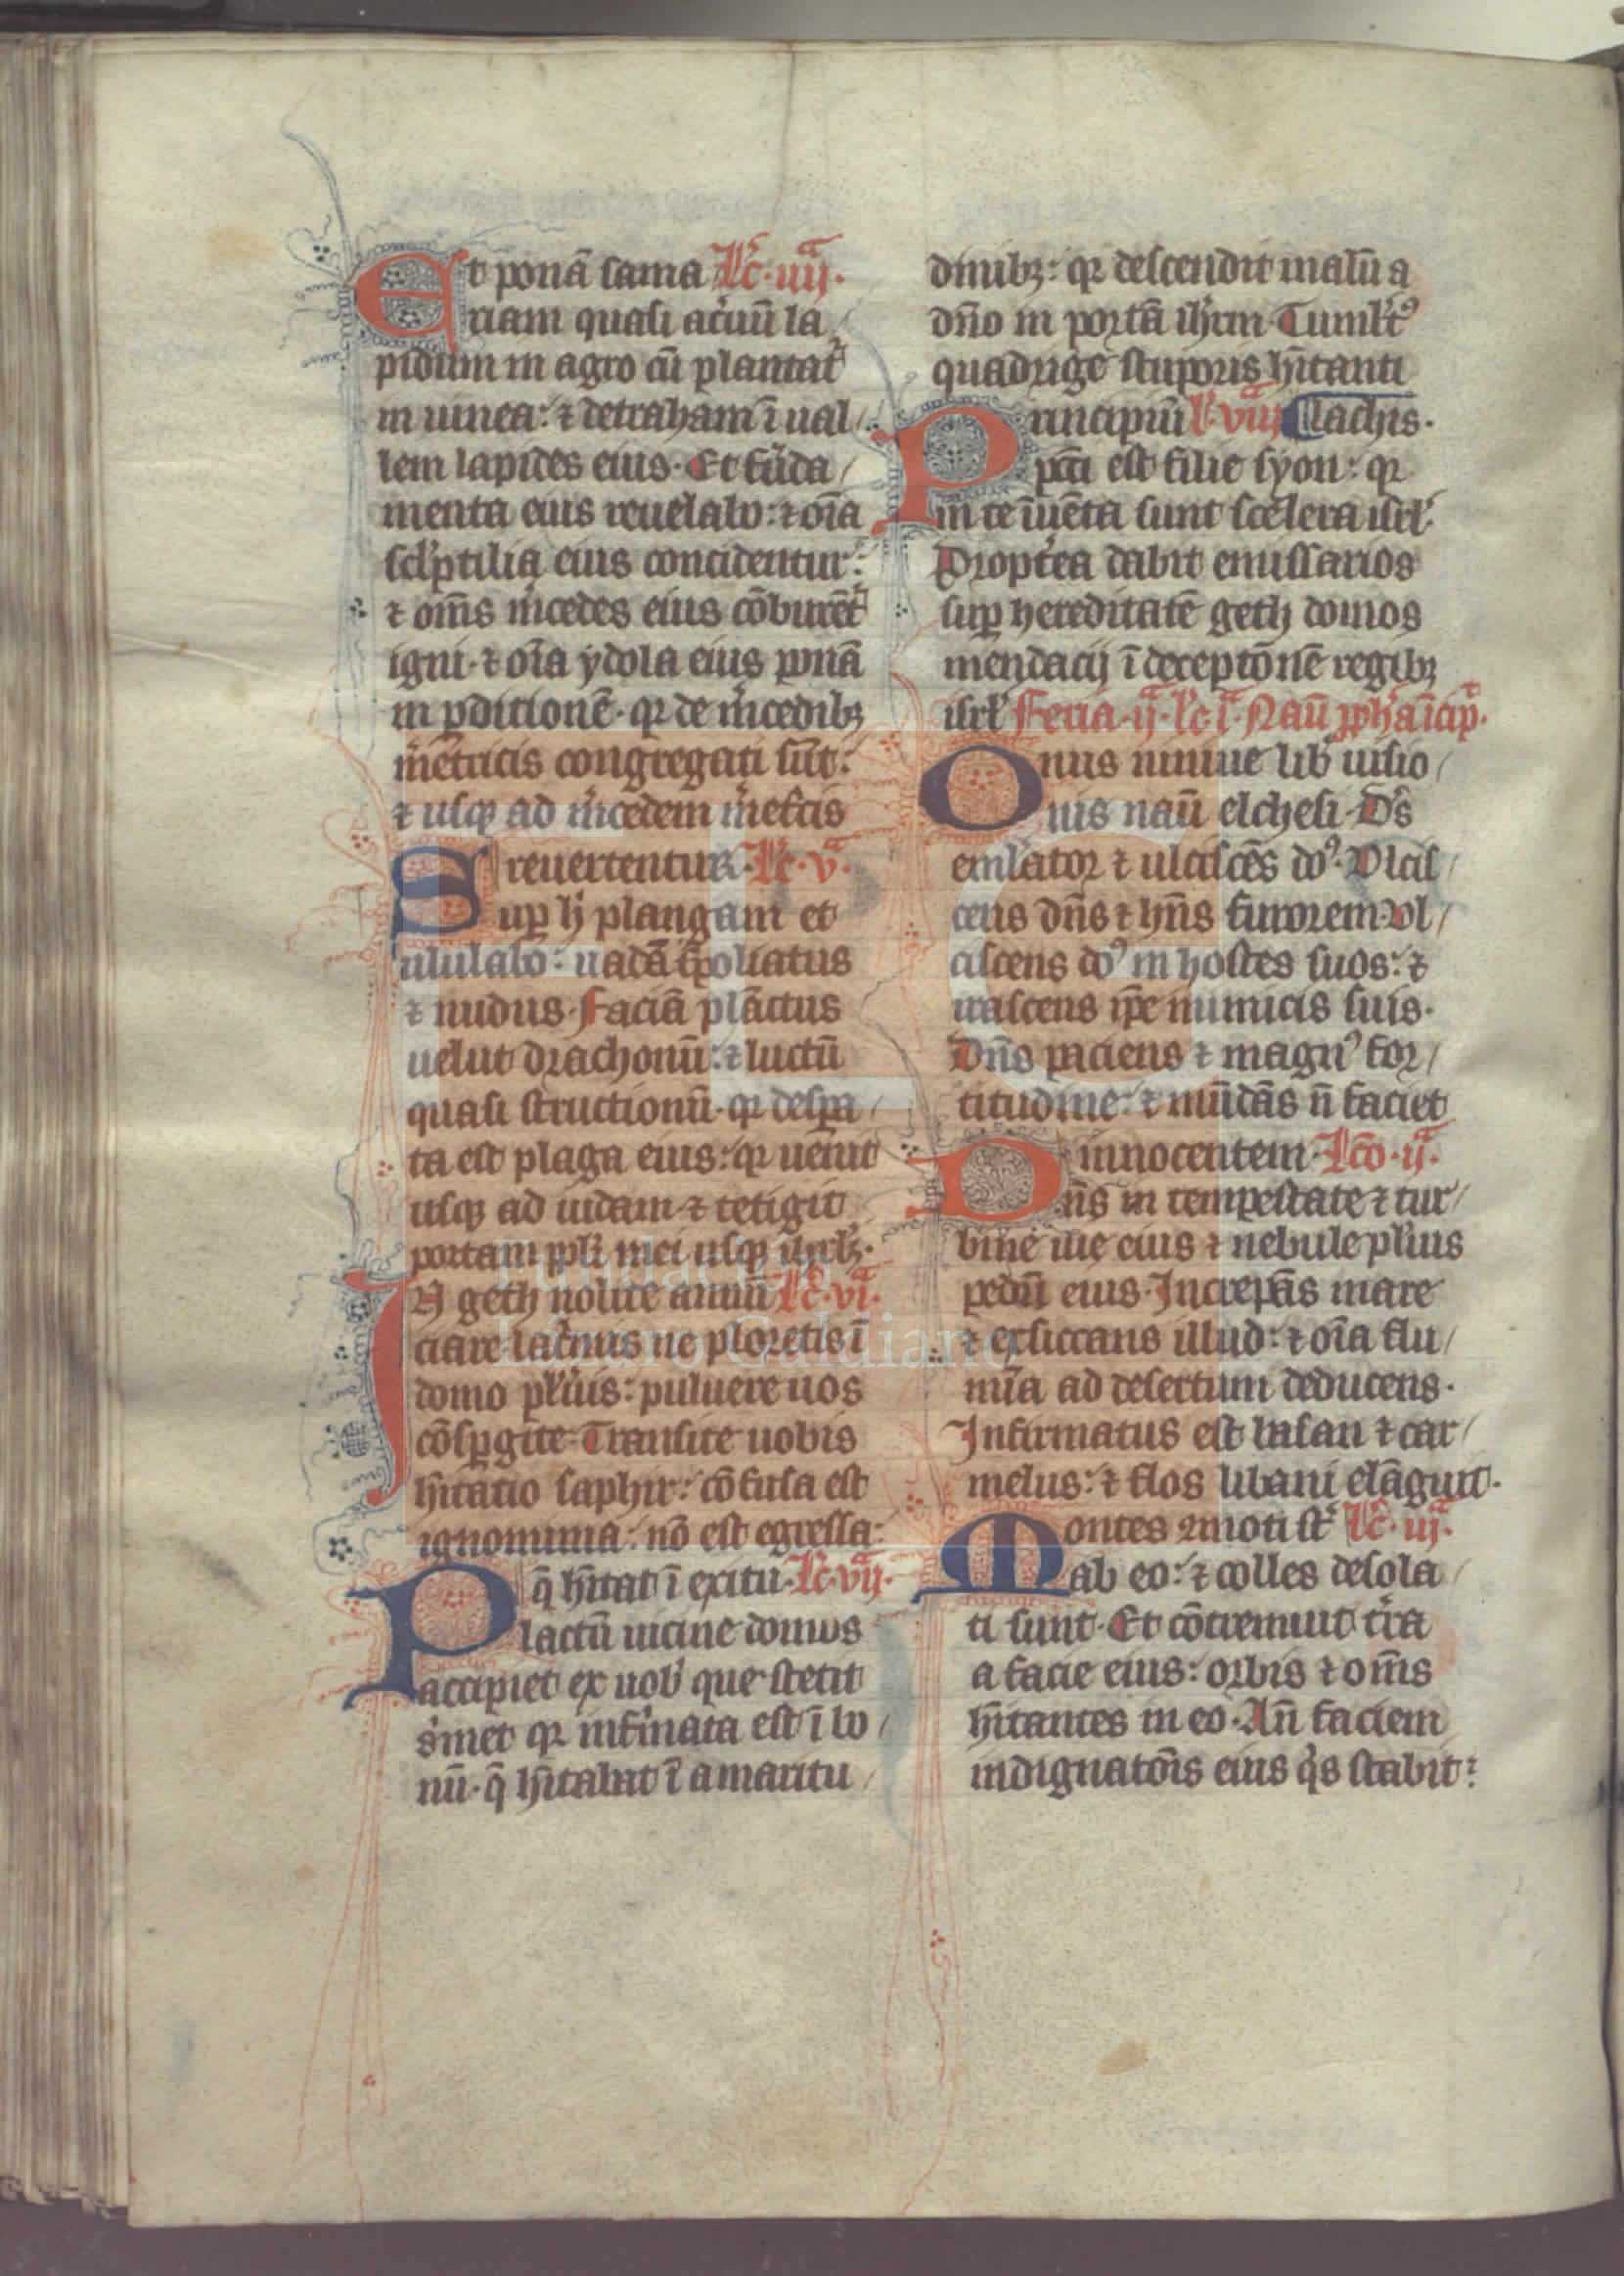 Et ponā sama lc̄ · iiij ·
riam quasi aciuū la
pidum in agro cū plantat̄
in uinea : ⁊ detraham ī ual
lem lapides eius · Et fūda
menta eius reuelabo : ⁊ oīa
sclptilia eius concidentur :
⁊ om̄s m̄cedes eius cōburēt̄
igni · ⁊ oīa ydola eius ponā
in ꝑditionē · qr de m̄cedibꝫ
m̄etricis congregati sūt :
⁊ usqꝫ ad m̄cedem m̄et̄cis
reuertentur · lc̄ · v ·
Suꝑ h̄ plangam et
ululabo : uadā spoliatus
⁊ nudus · Faciā plāctus
uelut drachonū : ⁊ luctū
quasi structionū · qr desꝑa
ta est plaga eius : qr uenit
usqꝫ ad iudam ⁊ tetigit
portam ppli mei usqꝫ ihrlm̄ ·
IN geth nolite annū lc̄ · vi ·
ciare lac̄mis ne ploretis ī
domo pluīs : puluere uos
cōsꝑgite · Transite uobis
hītatio saphir : cōfusa est
ignominia : nō est egressa :
q̄ hītat ī exitu · lc̄ · vij ·
Planctū uicine domus
accipiet ex uob̄ que stetit
s̄met qr infīmata est ī bo
nū · q̄ hītabat ī amaritu
dinibꝫ : qr descendit malū a
dn̄o in portā ihrlm · Tumltꝰ
quadrige stuporis hītanti
Principiū lc̄ · viij lachis ·
pc̄ti est filie syon : qr
in te īuēta sunt scelera isrl̄
Propt̄ea dabit emissarios
suꝑ hereditatē geth domos
mendacij ī deceptōnē regibꝫ
isrl̄ Feria · ij · lc̄ · i · Naū ꝓph̄a īcip̄ ·
Onus niniue lib̄ uisio
nis naū elchesi · Ds̄
eml̄ator ⁊ ulciscēs doꝰ · Vlcis
cens dn̄s ⁊ hn̄s furorem · Vl
ciscens doꝰ in hostes suos : ⁊
irascens ip̄e inimicis suis ·
Dn̄s paciens ⁊ magnꝰ for
titudine : ⁊ mūdās n̄ faciet
innocentem · lcō · ij ·
Dn̄s in tempestate ⁊ tur
bine uie eius ⁊ nebule pluīs
pedū eius · Increpās mare
⁊ exsiccans illud : ⁊ oīa flu
mīa ad desertum deducens ·
Infirmatus est basan ⁊ car
melus : ⁊ flos libani elāguit ·
Montes ɔmoti sт̄ lc̄ · iij ·
ab eo : ⁊ colles desola
ti sunt · Et cōtremuit t̄ra
a facie eius : orbis ⁊ om̄s
hītantes in eo · An̄ faciem
indignatōis eius q̄s stabit :
Lázaro Galdiano